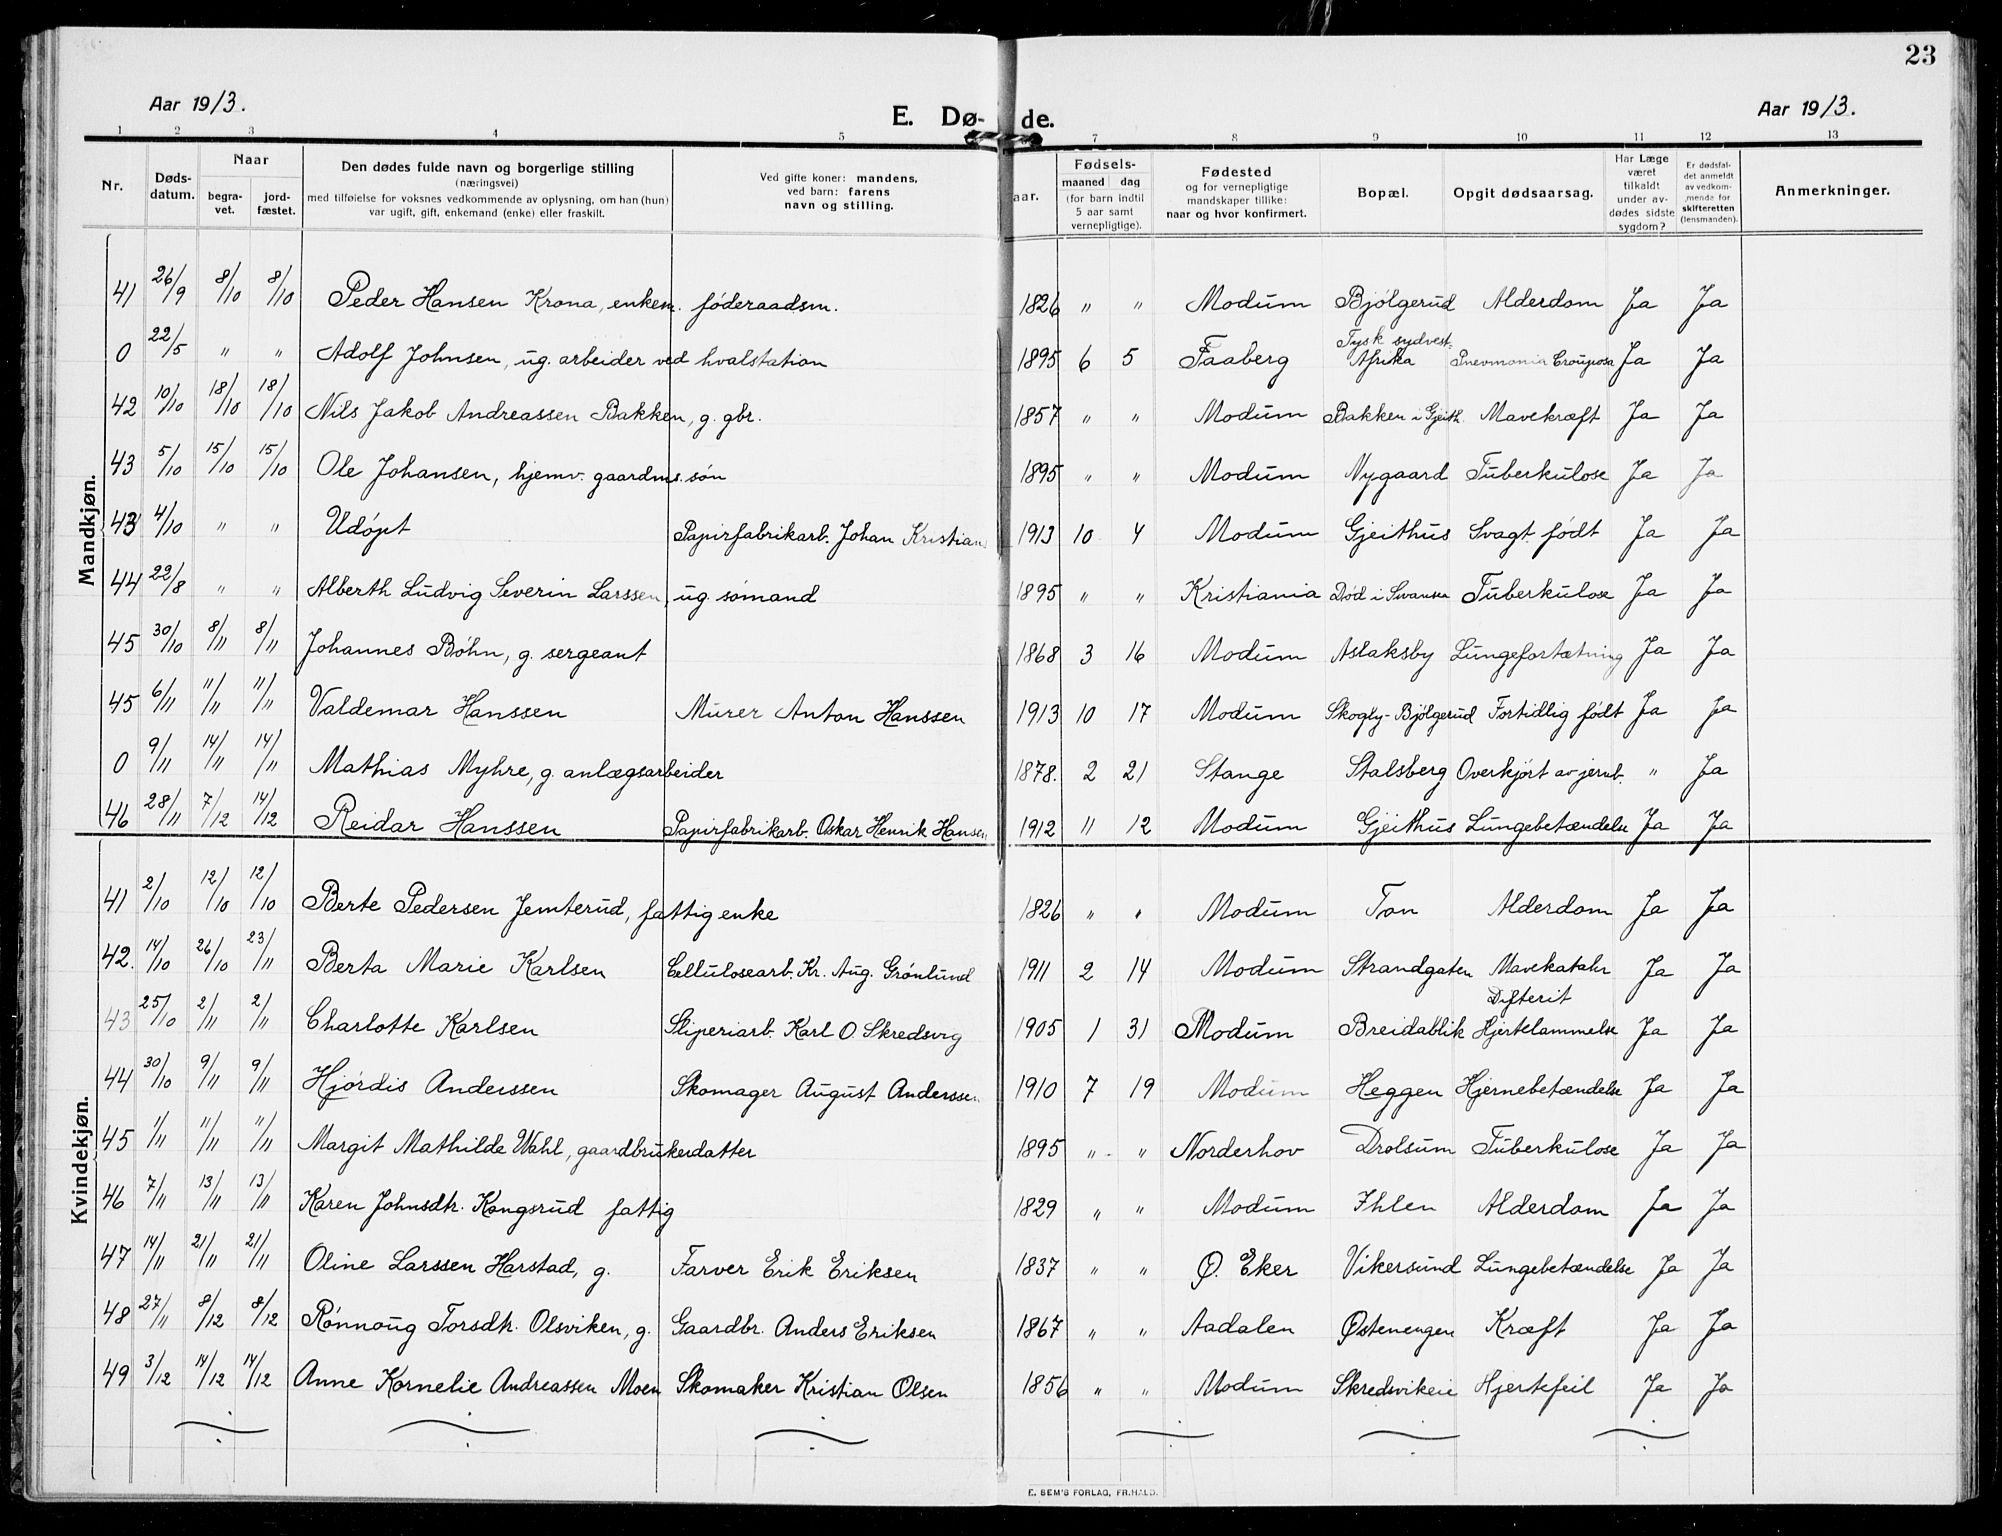 23
Aar 1913.
E. Dø- de.
Aar 1913.
1 2 3 4 5 7 8 9 10 11 12 13
Nr.
Døds-
datum.
Naar
begra-
vet.
jord-
fæstet.
Den dødes fulde navn og borgerlige stilling
(næringsvei)
med tilføielse for voksnes vedkommende av oplysning, om han (hun)
var ugift, gift, enkemand (enke) eller fraskilt.
Ved gifte koner: mandens,
ved barn: farens
navn og stilling.
aar.
Fødsels-
maaned dag
(for barn indtil
5 aar samt
vernepligtige).
Fødested
og for vernepligtige
mandskaper tillike:
naar og hvor konfirmert.
Bopæl.
Opgit dødsaarsag.
Har Læge
været
tilkaldt
under av-
dødes sidste
sygdom?
Er dødsfal-
det anmeldt
av vedkom-
mende for
skifteretten
(lensmanden).
Anmerkninger.
Mandkjøn.
41 26/9 8/10 8/10 Peder Hansen Krona, enkem. føderaadsm. 1826 " " Modum Bjølgerud Alderdom Ja Ja
0 22/5 " " Adolf Johnsen, ug. arbeider ved hvalstation 1895 6 5 Faaberg Tysk sydvest- Afrika Pnevmonia Crouposa Ja Ja
42 10/10 18/10 18/10 Nils Jakob Andreassen Bakken, g. gbr. 1857 " " Modum Bakken i Gjeith. Mavekræft Ja Ja
43 5/10 15/10 15/10 Ole Johansen, hjemv. gaardms. søn 1895 " " Modum Nygaard Tuberkulose Ja Ja
43 4/10 " " Udøpt Papirfabrikarb. Johan Kristian 1913 10 4 Modum Gjeithus Svagt født Ja Ja
44 22/8 " " Alberth Ludvig Severin Larssen, ug. sømand 1895 " " Kristiania Død i Swansea Tuberkulose Ja Ja
45 30/10 8/11 8/11 Johannes Bøhn, g. sergeant 1868 3 16 Modum Aslaksby Lungefortætning Ja Ja
45 6/11 11/11 11/11 Valdemar Hanssen Murer Anton Hanssen 1913 10 17 Modum Skogly-Bjølgerud Fortidlig født Ja Ja
0 9/11 14/11 14/11 Mathias Myhre, g. anlægsarbeider 1878. 2 21 Stange Stalsberg Overkjørt av jernb. " Ja
46 28/11 7/12 14/12 Reidar Hanssen Papirfabrikarb. Oskar Henrik Hansen 1912 11 12 Modum Gjeithus Lungebetændelse Ja Ja
Kvindekjøn.
41 2/10 12/10 12/10 Berte Pedersen Jemterud, fattig enke 1826 " " Modum Ton Alderdom Ja Ja
42. 14/10 26/10 23/11 Berta Marie Karlsen Cellulosearb. Kr. Aug. Grønlund 1911 2 14 Modum Strandgaten Mavekatahr Ja Ja
43 25/10 2/11 2/11 Charlotte Karlsen Sliperiarb. Karl O. Skredsvig 1905 1 31 Modum Breidablik Difterit Hjertelammelse Ja Ja
44 30/10 9/11 9/11 Hjørdis Anderssen Skomager August Anderssen 1910 7 19 Modum Heggen Hjernebetændelse Ja Ja
45 1/11 11/11 11/11 Margit Mathilde Wahl, gaardbrukerdatter 1895 " " Norderhov Drolsum Tuberkulose Ja Ja
46 7/11 13/11 13/11 Karen Johnsdtr. Kongsrud fattig 1829 " " Modum Ihlen Alderdom Ja Ja
47 14/11 21/11 21/11 Oline Larssen Harstad, g. Farver Erik Eriksen 1837 " " Ø. Eker Vikersund Lungebetændelse Ja Ja
48 27/11 8/12 8/12 Rønnoug Torsdtr. Olsviken, g. Gaardbr. Anders Eriksen 1867 " " Aadalen Østenengen Kræft Ja Ja
49 3/12 14/12 14/12 Anne Kornelie Andreassen Moen Skomaker Kristian Olsen 1856 " " Modum Skredsvikeie Hjertefeil Ja Ja
E. SEM'S FORLAG, FR.HALD.